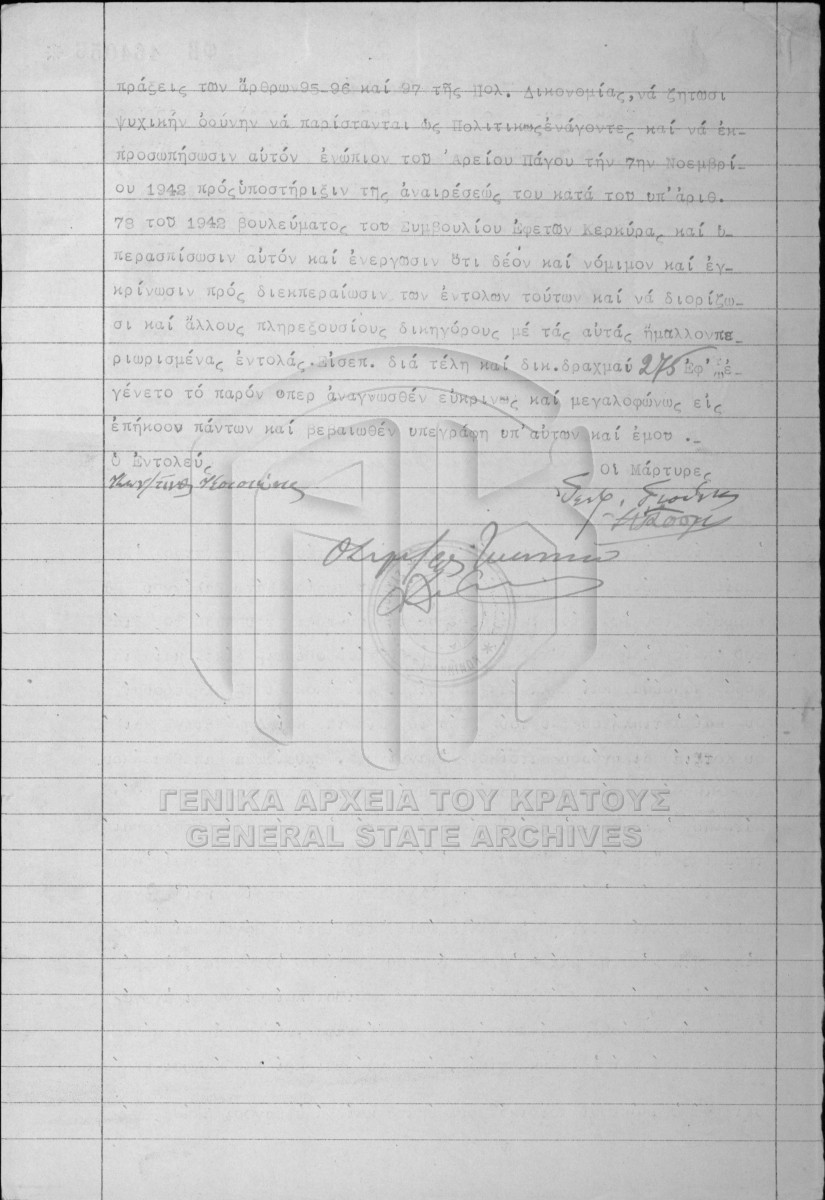 πράξεις των ἄρθρων 95-96 καί 97 τῆς Πολ. Δικονομίας, νά ζητωσι
ψυχικήν ὀδύνην νά παρίστανται ὡς Πολιτικως ἐνάγοντες καί νά ἐκ-
προσωπήσωσιν αὐτόν ἐνώπιον του Ἀρείου Πάγου τήν 7ην Νοεμβρί-
ου 1942 πρός ὑποστήριξιν τῆς ἀναιρέσεώς του κατά του ὑπ' ἀριθ.
78 τοῦ 1942 βουλεύματος του Συμβουλίου Ἐφετῶν Κερκύρας καί ὑ-
περασπίσωσιν αὐτόν καί ἐνεργωσιν ὅτι δέον καί νόμιμον καί ἐγ-
κρίνωσιν πρός διεκπεραίωσιν των ἐντολων τούτων καί νά διορίζω-
σι καί ἄλλους πληρεξουσίους δικηγόρους μέ τάς αὐτάς ἤμαλλονπε-
ριωρισμένας ἐντολάς. Εἰσεπ. διά τέλη καί δικ. δραχμαί 275 Ἐφ' ᾧ ἐ-
γένετο τό παρόν ὅπερ ἀναγνωσθέν εὐκρινως καί μεγαλοφώνως εἰς
ἐπήκοον πάντων καί βεβαιωθέν ὑπεγράφη ὑπ' αὐτων καί ἐμου .-
Ὁ Ἐντολεύς
Οἱ Μάρτυρες
ΓΕΝΙΚΑ ΑΡΧΕΙΑ ΤΟΥ ΚΡΑΤΟΥΣ
GENERAL STATE ARCHIVES